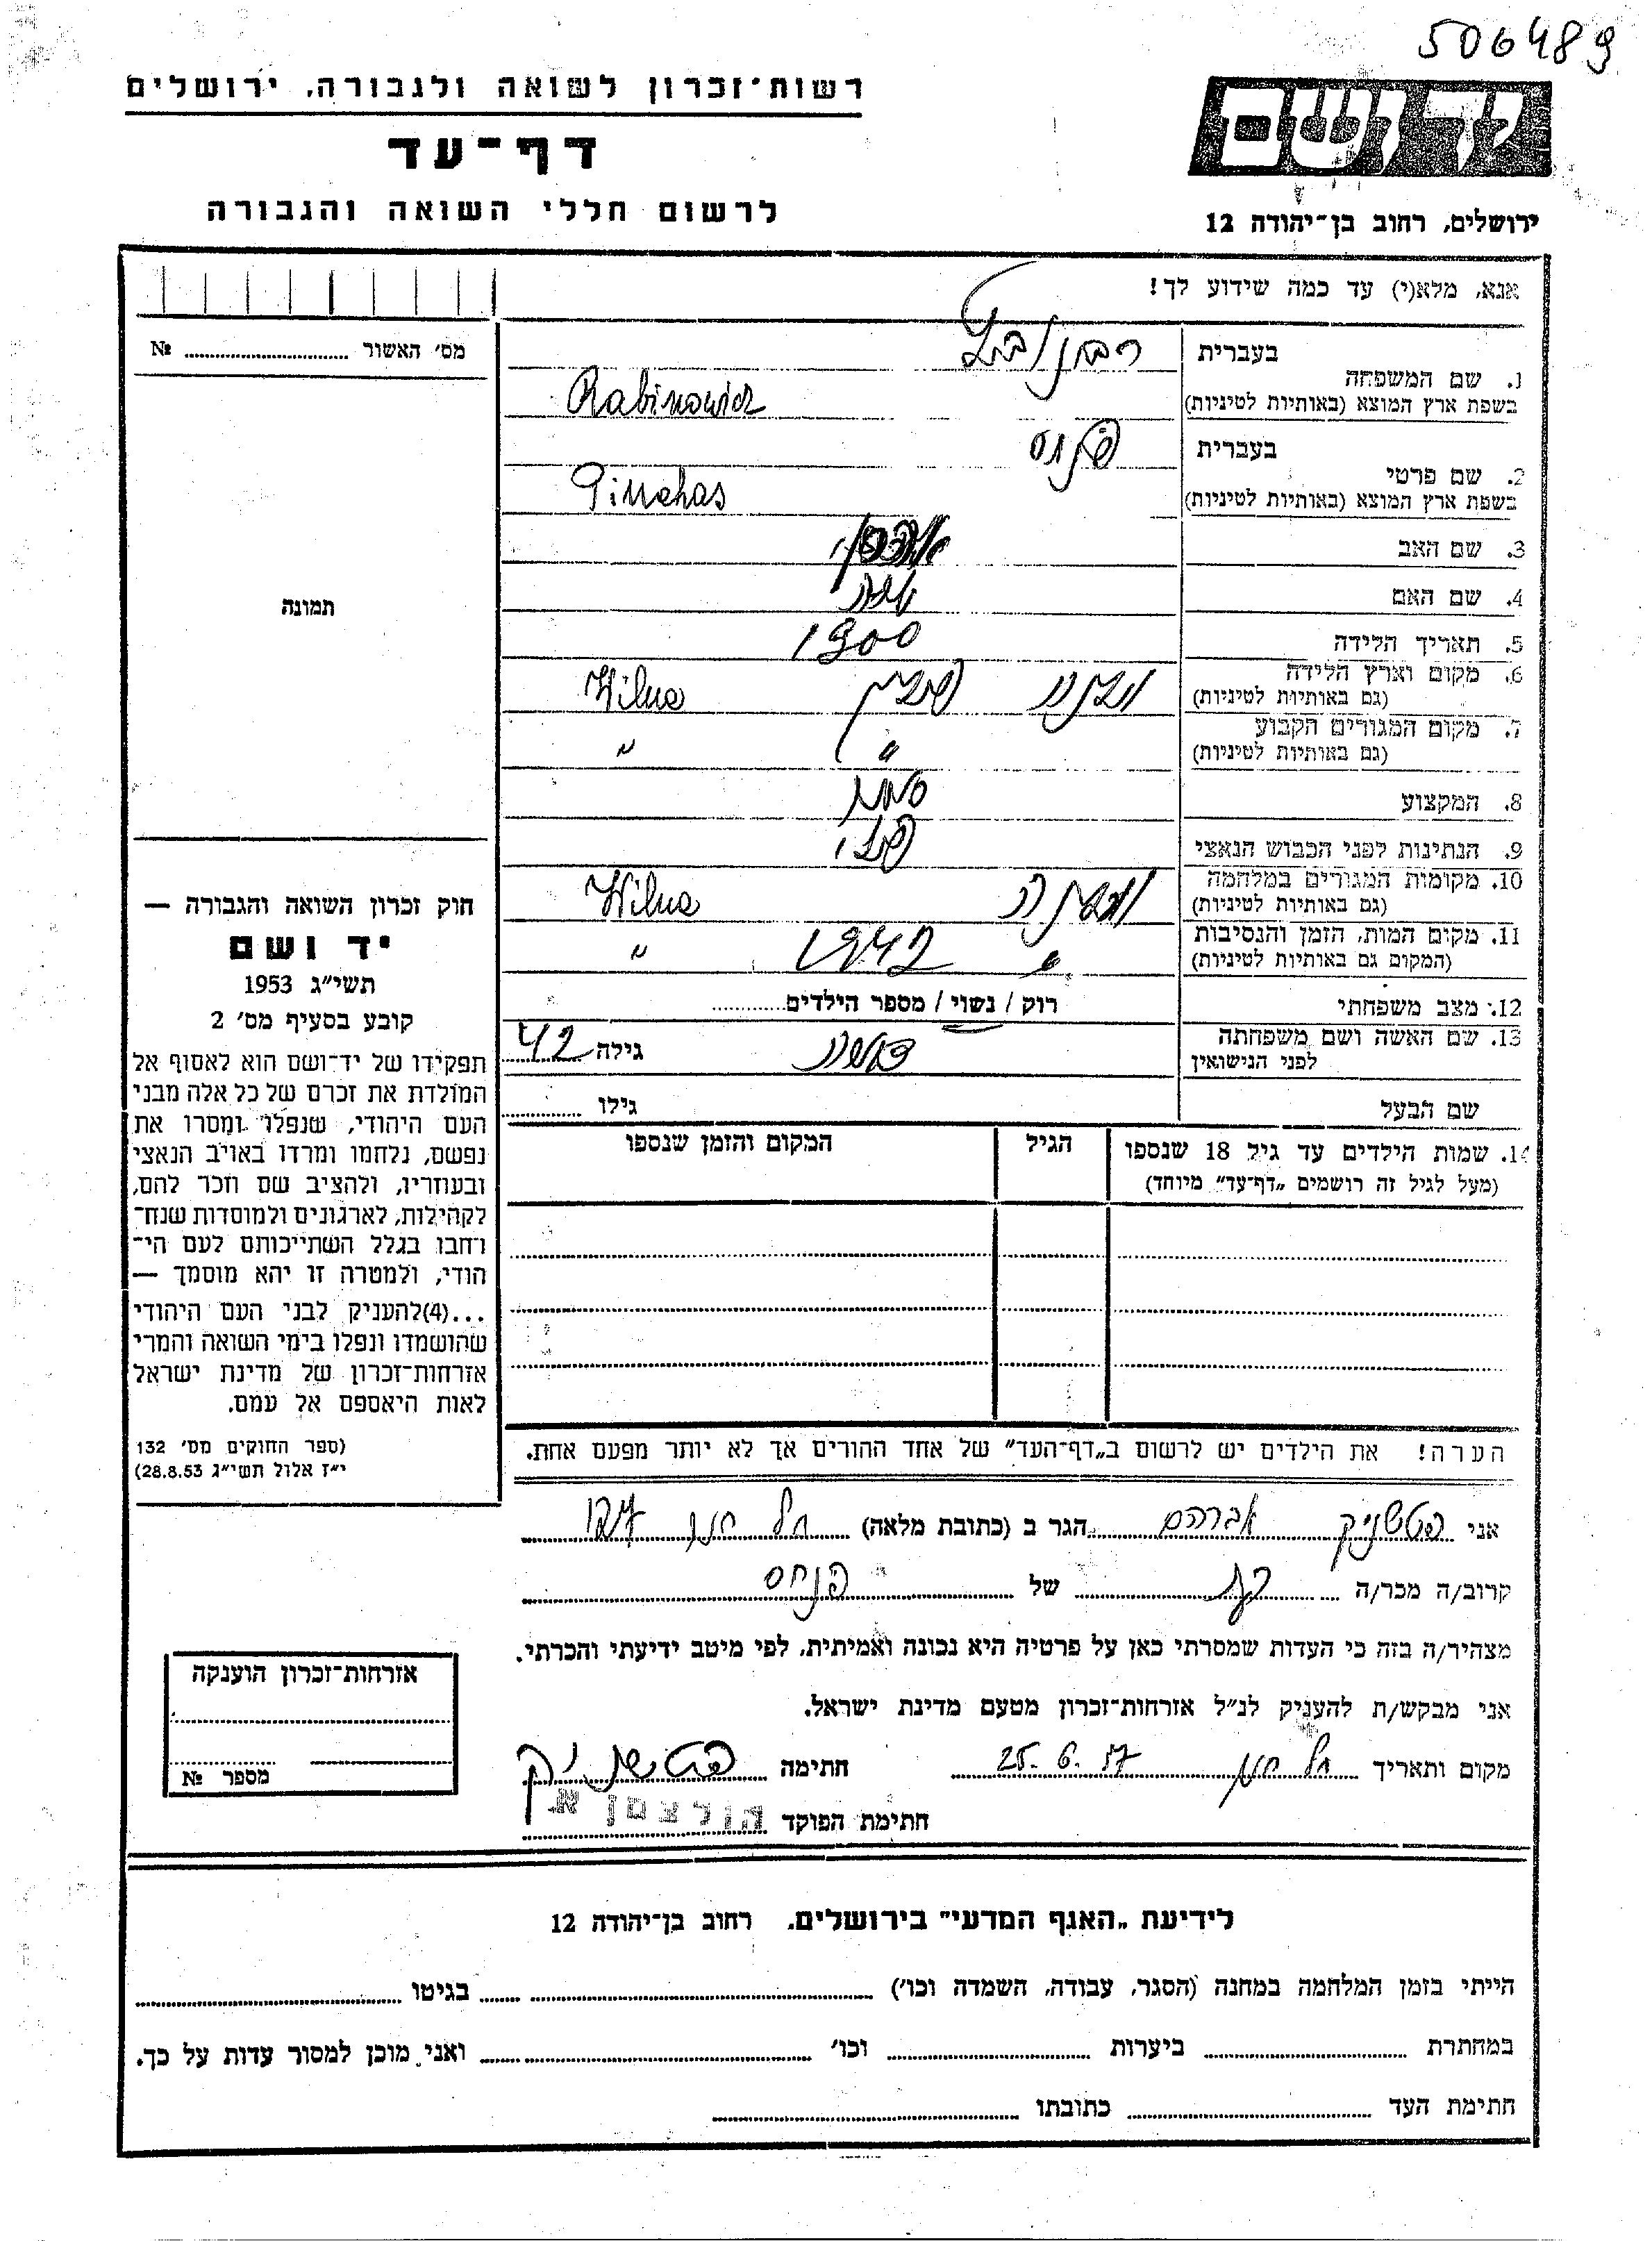 506489
רשות־זכרון לשואה ולגבורה, ירושלים
דף־עד
לרשום חללי השואה והגבורה
יד ושם
ירושלים, רחוב בן־יהודה 12
אנא, מלא(י) עד כמה שידוע לך!
מס׳ האשור № 
תמונה
1. שם המשפחה
בעברית רבינוביץ
בשפת ארץ המוצא (באותיות לטיניות) Rabinowicz
2. שם פרטי
בעברית פנחס
בשפת ארץ המוצא (באותיות לטיניות) Pinchas
3. שם האב
4. שם האם
5. תאריך הלידה 1900
6. מקום וארץ הלידה
(גם באותיות לטיניות) וילנה פולין Wilna
7. מקום המגורים הקבוע
(גם באותיות לטיניות) " "
8. המקצוע סוחר
9. הנתינות לפני הכבוש הנאצי פולני
10. מקומות המגורים במלחמה
(גם באותיות לטיניות) וילנה Wilna
11. מקום המות, הזמן והנסיבות
(המקום גם באותיות לטיניות) " 1942 "
12. מצב משפחתי רוק / נשוי / מספר הילדים
13. שם האשה ושם משפחתה
לפני הנישואין גילה 42
שם הבעל גילו
14. שמות הילדים עד גיל 18 שנספו
(מעל לגיל זה רושמים „דף־עד" מיוחד)
הגיל
המקום והזמן שנספו
חוק זכרון השואה והגבורה —
יד ושם
תשי״ג 1953
קובע בסעיף מס׳ 2
תפקידו של יד־ושם הוא לאסוף אל
המולדת את זכרם של כל אלה מבני
העם היהודי, שנפלו ומסרו את
נפשם, נלחמו ומרדו באויב הנאצי
ובעוזריו, ולהציב שם וזכר להם,
לקהילות, לארגונים ולמוסדות שנח־
רחבו בגלל השתייכותם לעם הי־
הודי, ולמטרה זו יהא מוסמך —
...(4)להעניק לבני העם היהודי
שהושמדו ונפלו בימי השואה והמרי
אזרחות־זכרון של מדינת ישראל
לאות היאספם אל עמם.
(ספר החוקים מס׳ 132
י״ז אלול תשי״ג 28.8.53)
הערה! את הילדים יש לרשום ב„דף־העד" של אחד ההורים אך לא יותר מפעם אחת.
אני פטשניק אברהם הגר ב (כתובת מלאה) תל חנן 127
קרוב/ה מכר/ה של פנחס
מצהיר/ה בזה כי העדות שמסרתי כאן על פרטיה היא נכונה ואמיתית, לפי מיטב ידיעתי והכרתי.
אני מבקש/ת להעניק לנ״ל אזרחות־זכרון מטעם מדינת ישראל.
מקום ותאריך תל חנן 25.6.57 חתימה פטשניק
חתימת הפוקד הולצמן א.
אזרחות־זכרון הוענקה
מספר №
לידיעת „האגף המדעי" בירושלים, רחוב בן־יהודה 12
הייתי בזמן המלחמה במחנה (הסגר, עבודה, השמדה וכו׳) בגיטו
במחתרת ביערות וכו׳ ואני מוכן למסור עדות על כך.
חתימת העד כתובתו